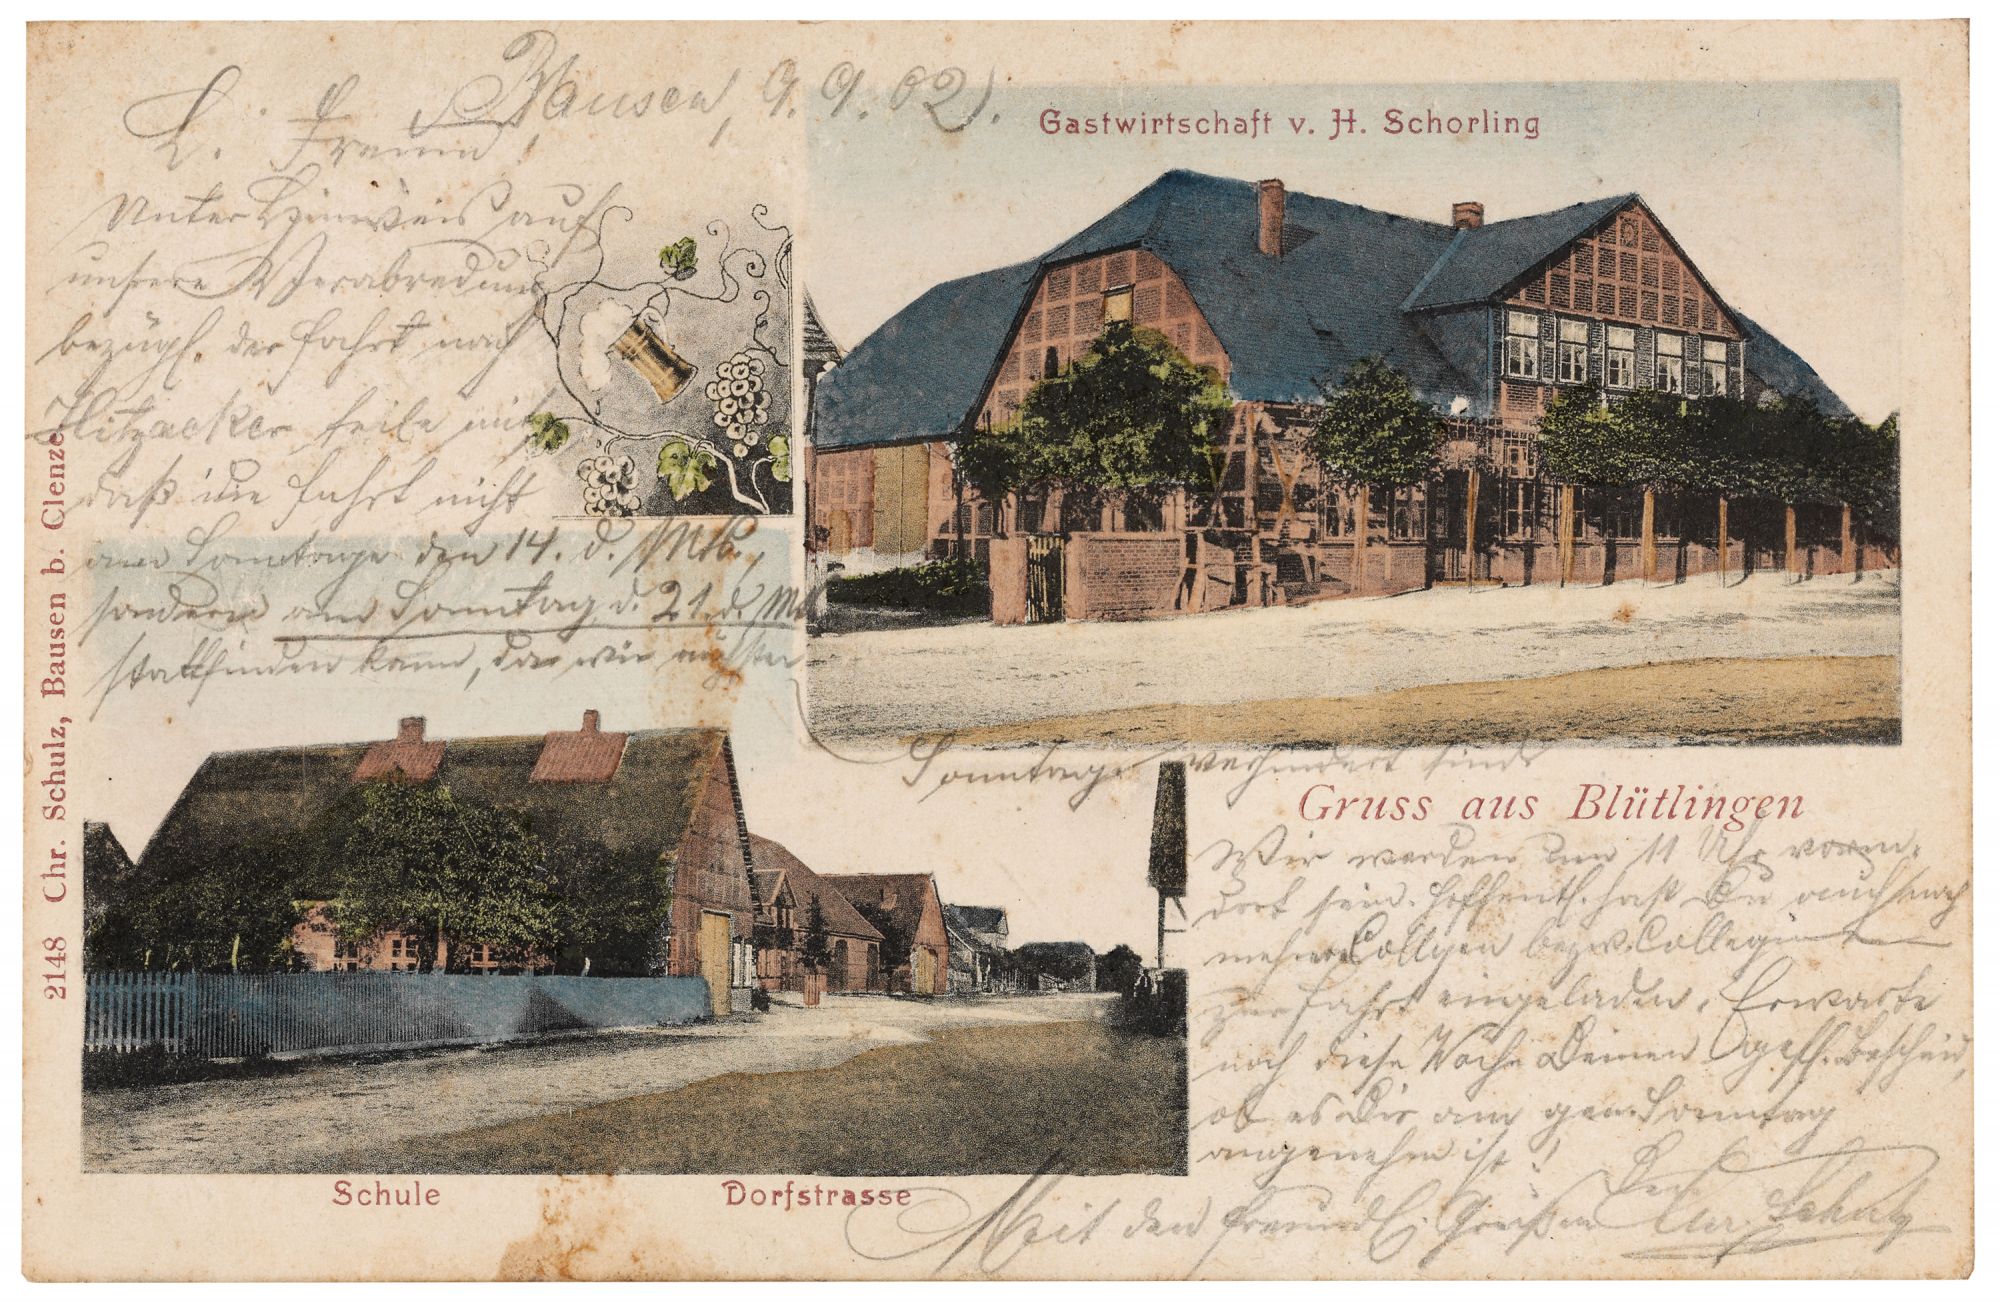 Bausen, 9. 9. 02.
L. Freund!
Unter Hinweis auf
unsere Verabredung
bezügl. der Fahrt nach
Hitzacker teile mit
daß die Fahrt nicht
am Sonntage den 14. d. Mts.,
sondern am Sonntag d. 21. d. Mts
stattfinden kann, da wir nächsten
Sonntage verhindert sind.
Wir werden um 11 Uhr vorm.
dort sein. Hoffentl. hast Du auch noch
mehrere Collegen bezw. Colleginnen
zur Fahrt eingeladen. Erwarte
noch diese Woche Deinen gefl. Bescheid,
ob es Dir am gen. Sonntag
angenehm ist!
Mit den freundl. Grüßen
Dein Chr. Schulz
Gastwirtschaft v. H. Schorling
Gruss aus Blütlingen
Schule
Dorfstrasse
2148 Chr. Schulz, Bausen b. Clenze